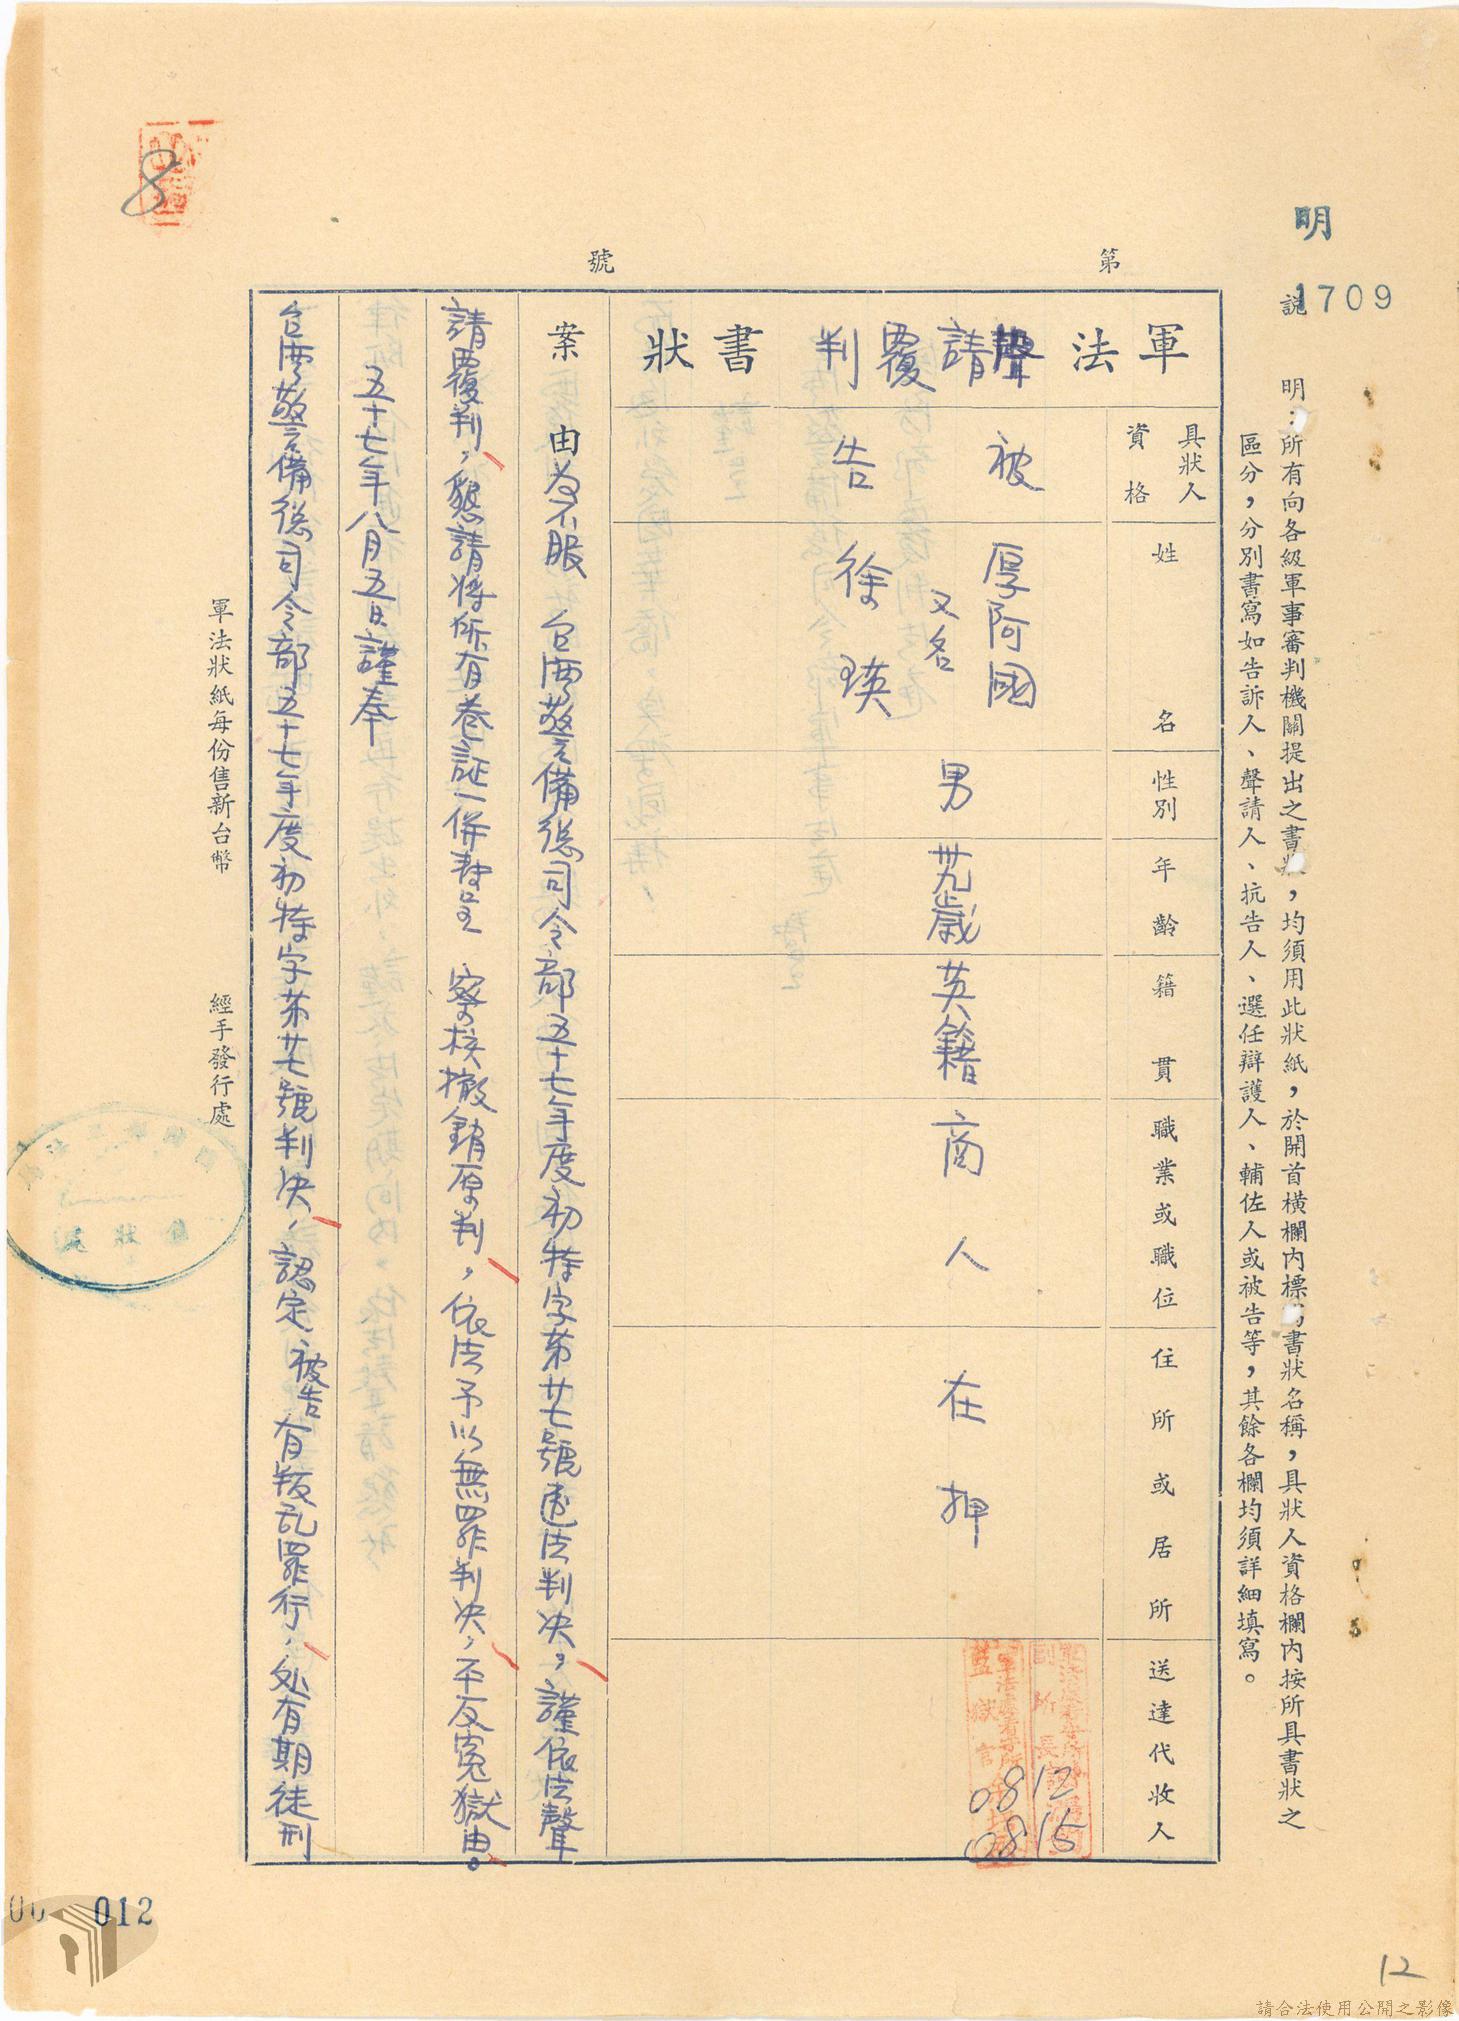 明
1709
說　明：所有向各級軍事審判機關提出之書狀，均須用此狀紙，於開首橫欄內標明書狀名稱，具狀人資格欄內按所具書狀之
區分，分別書寫如告訴人、聲請人、抗告人、選任辯護人、輔佐人或被告等，其餘各欄均須詳細填寫。
第　號
軍法聲請覆判書狀
具狀人資格
姓名
性別
年齡
籍貫
職業或職位
住所或居所
送達代收人
被告
厚阿國
又名
徐瑛
男
卅九歲
英籍
商人
在押
副所長
監獄官
0812
0815
案由為不服　台灣警備總司令部五十七年度初特字第廿七號違法判決，謹依法聲
請覆判，懇請將所有卷証一併轉呈　察核撤銷原判，依法予以無罪判決，平反冤獄由。
五十七年八月五日謹奉
台灣警備總司令部五十七年度初特字第廿七號判決，認定被告有叛乱罪行，处有期徒刑
軍法狀紙每份售新台幣　經手發行處
8
012
12
請合法使用公開之影像